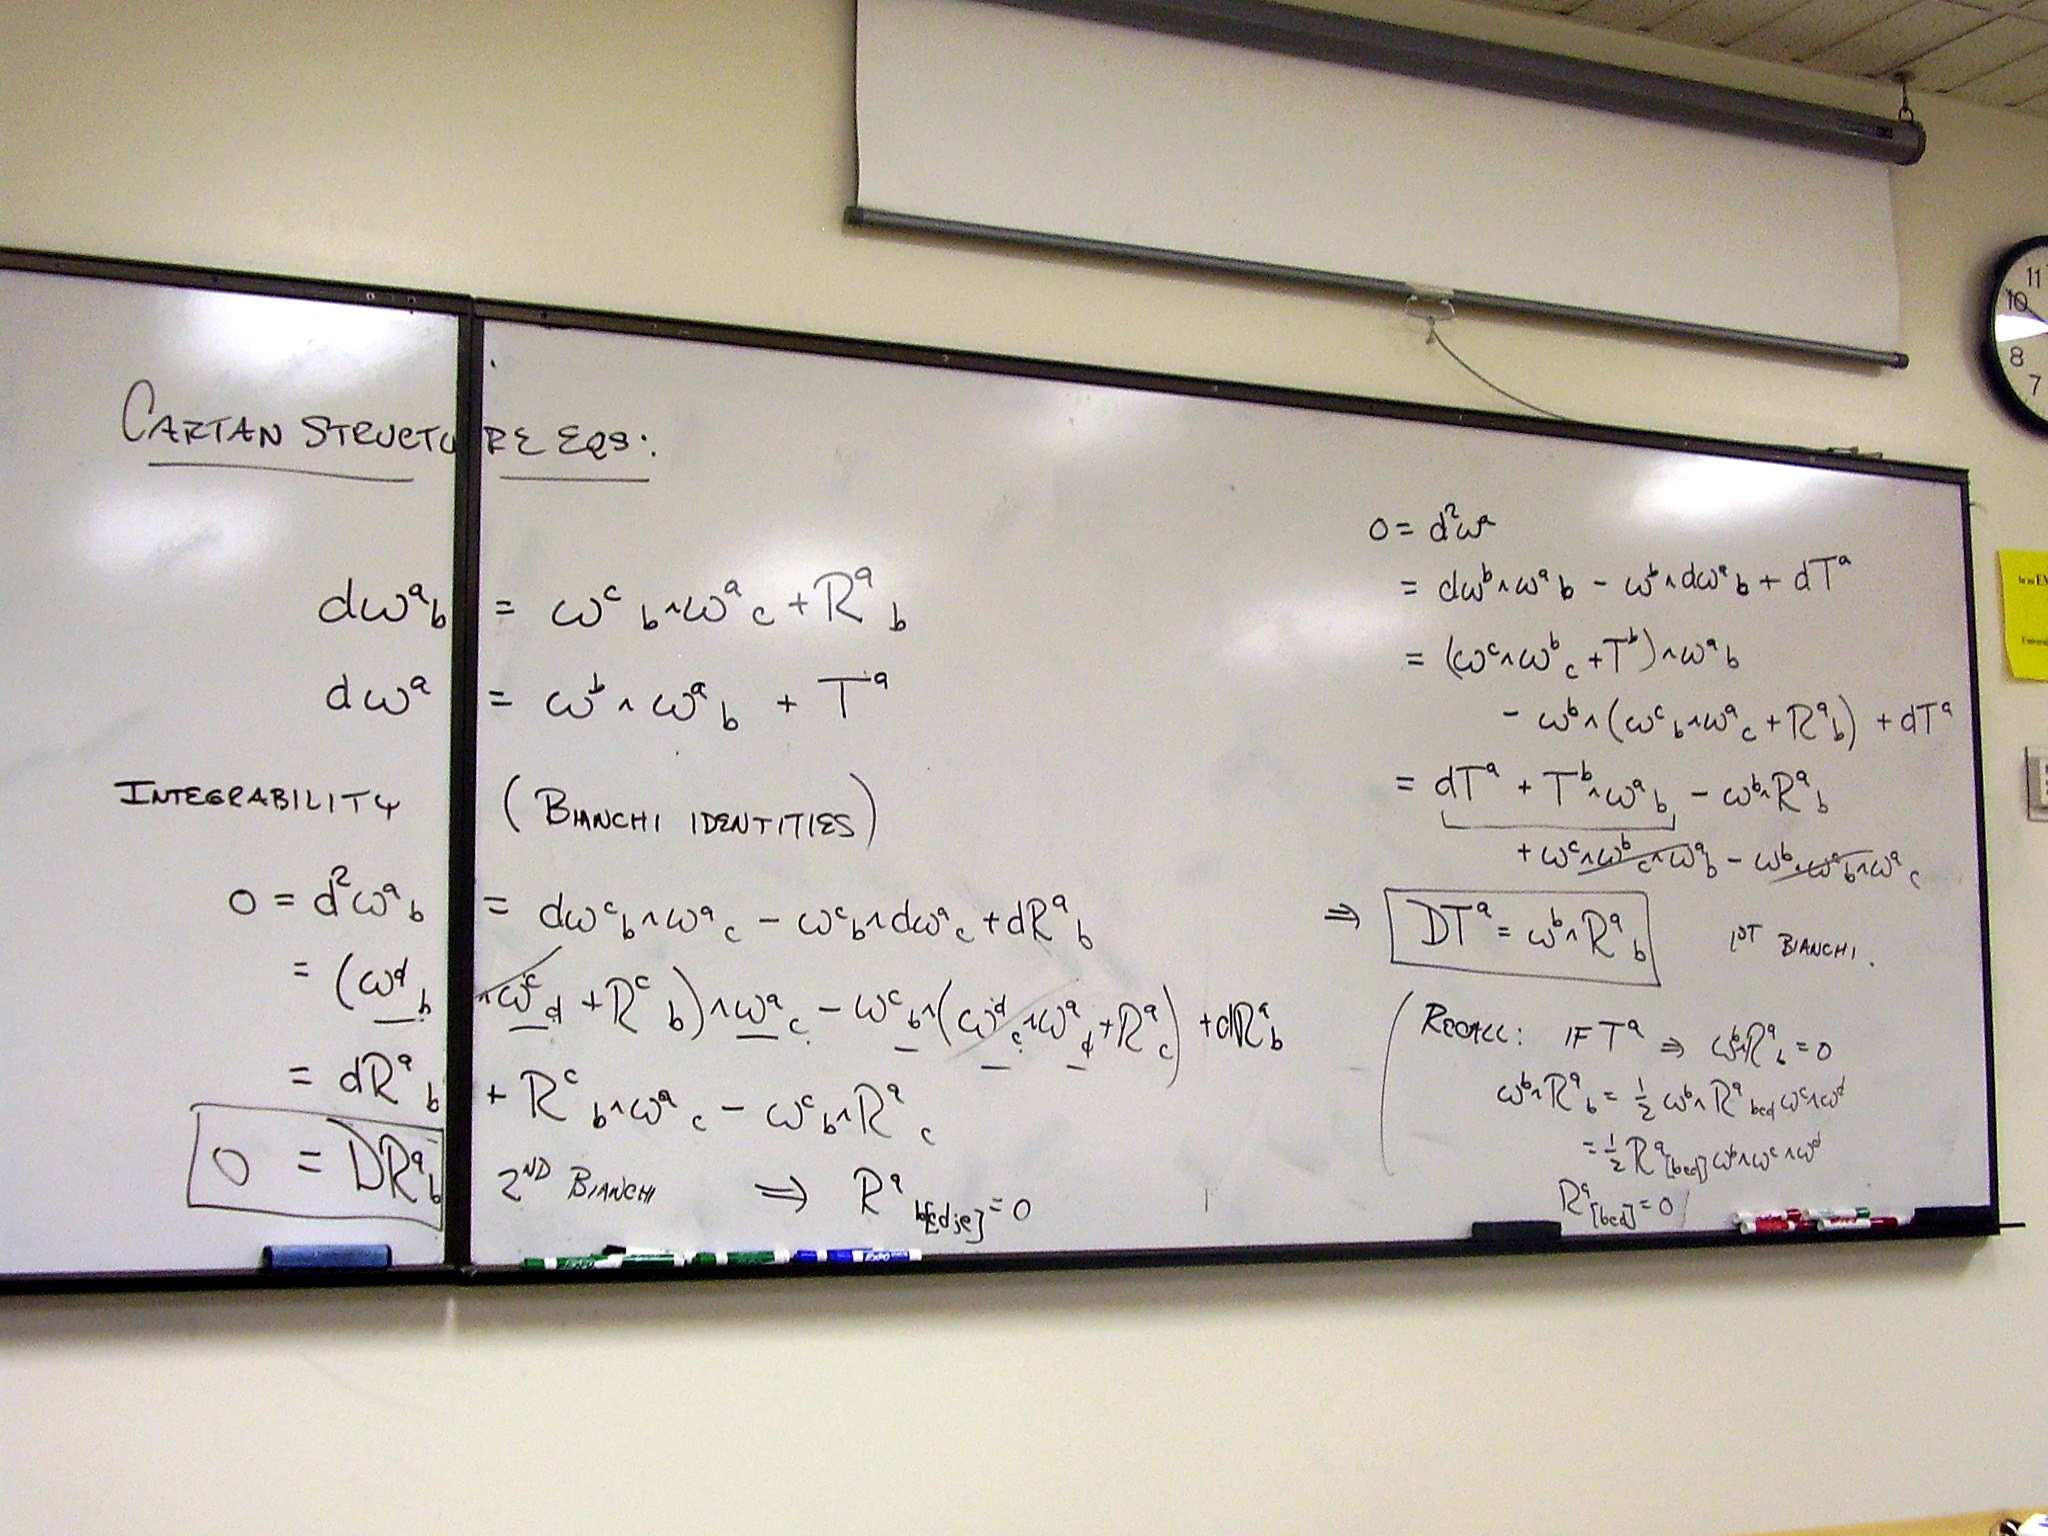 CARTAN STRUCTURE EQS:
dω^a_b = ω^c_b ∧ ω^a_c + R^a_b
dω^a = ω^b ∧ ω^a_b + T^a
INTEGRABILITY (BIANCHI IDENTITIES)
0 = d²ω^a_b = dω^c_b ∧ ω^a_c − ω^c_b ∧ dω^a_c + dR^a_b
= (ω^d_b ∧ ω^c_d + R^c_b) ∧ ω^a_c − ω^c_b ∧ (ω^d_c ∧ ω^a_d + R^a_c) + dR^a_b
= dR^a_b + R^c_b ∧ ω^a_c − ω^c_b ∧ R^a_c
0 = DR^a_b 2ND BIANCHI ⇒ R^a_b[cd;e] = 0
0 = d²ω^a
= dω^b ∧ ω^a_b − ω^b ∧ dω^a_b + dT^a
= (ω^c ∧ ω^b_c + T^b) ∧ ω^a_b
− ω^b ∧ (ω^c_b ∧ ω^a_c + R^a_b) + dT^a
= dT^a + T^b ∧ ω^a_b − ω^b ∧ R^a_b
+ ω^c ∧ ω^b_c ∧ ω^a_b − ω^b ∧ ω^c_b ∧ ω^a_c
⇒ DT^a = ω^b ∧ R^a_b 1ST BIANCHI.
(RECALL: IF T^a ⇒ ω^b ∧ R^a_b = 0
ω^b ∧ R^a_b = ½ ω^b ∧ R^a_bcd ω^c ∧ ω^d
= ½ R^a_[bcd] ω^b ∧ ω^c ∧ ω^d
R^a_[bcd] = 0
11
10
8
7
EXPO
EXPO